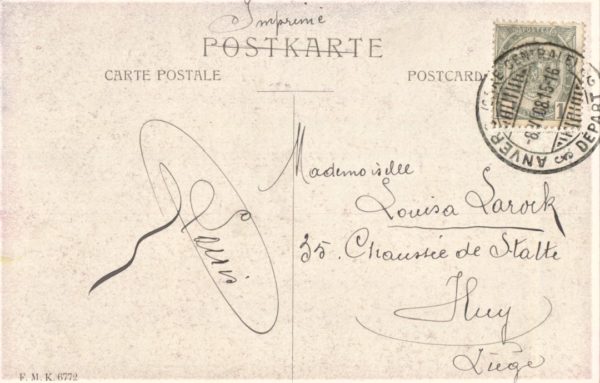 Imprimé
POSTKARTE
CARTE POSTALE
POSTCARD
1
ANVERS GARE CENTRALE
DÉPART
Mademoiselle
Louisa Larock
35. Chaussée de Statte
Huy
Liége
Louis
F. M. K. 6772